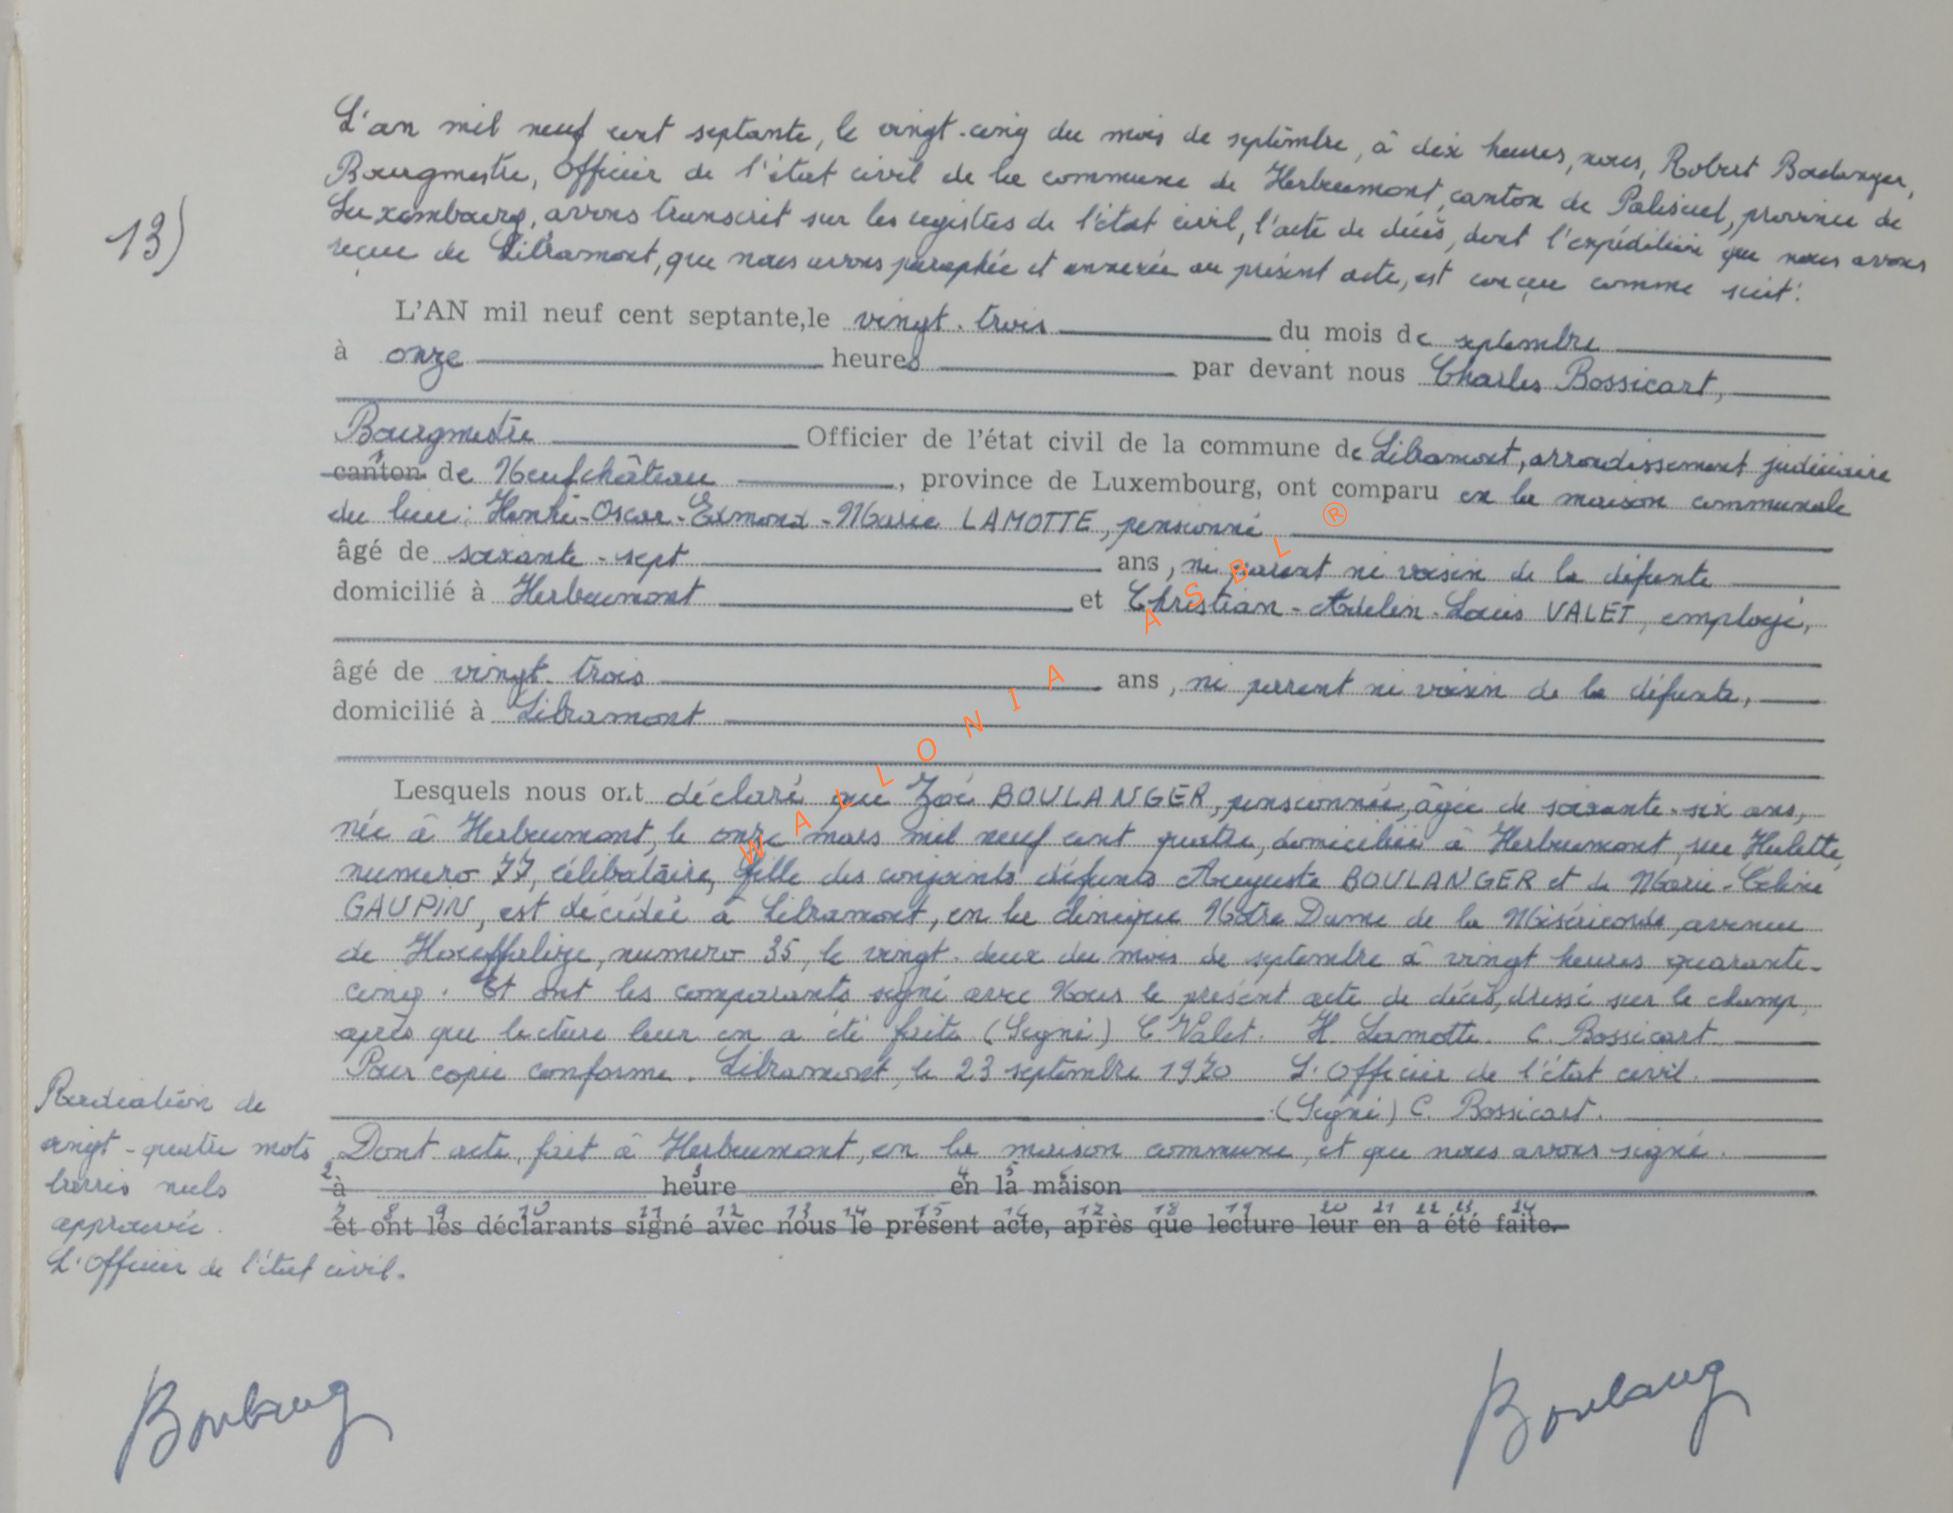 L'an mil neuf cent septante, le vingt-cinq du mois de septembre, à dix heures, nous, Robert Boulanger,
Bourgmestre, Officier de l'état civil de la commune de Herbeumont, canton de Paliseul, province de
Luxembourg, avons transcrit sur les registres de l'état civil, l'acte de décès, dont l'expédition que nous avons
reçue de Libramont, que nous avons paraphée et annexée au présent acte, est conçu comme suit:
13)
L'AN mil neuf cent septante, le vingt-trois du mois de septembre
à onze heures par devant nous Charles Bossicart,
Bourgmestre Officier de l'état civil de la commune de Libramont, arrondissement judiciaire
canton de Neufchâteau, province de Luxembourg, ont comparu en la maison communale
du lieu: Henri-Oscar-Edmond-Marie LAMOTTE, pensionné
âgé de soixante-sept ans, ni parent ni voisin de la défunte
domicilié à Herbeumont et Christian-Adelin-Louis VALET, employé,
âgé de vingt-trois ans, ni parent ni voisin de la défunte,
domicilié à Libramont
Lesquels nous ont déclaré que Zoé BOULANGER, pensionnée, âgée de soixante-six ans,
née à Herbeumont, le onze mars mil neuf cent quatre, domiciliée à Herbeumont, rue Hulette,
numero 77, célibataire, fille des conjoints défunts Auguste BOULANGER et de Marie-Celine
GAUPIN, est décédée à Libramont, en la clinique Notre Dame de la Miséricorde, avenue
de Houffalize, numero 35, le vingt-deux du mois de septembre à vingt heures quarante-
cinq. Et ont les comparants signé avec Nous le présent acte de décès, dressé sur le champ,
après que lecture leur en a été faite (Signé) C Valet. H. Lamotte. C. Bossicart.
Pour copie conforme. Libramont, le 23 septembre 1970 L'Officier de l'état civil.
(Signé) C. Bossicart.
Dont acte, fait à Herbeumont, en la maison commune, et que nous avons signé.
2 3 4 5 6
à heure en la maison
7 8 9 10 11 12 13 14 15 16 17 18 19 20 21 22 23 24
et ont les déclarants signé avec nous le présent acte, après que lecture leur en a été faite.
Radiation de
vingt-quatre mots
barrés nuls
approuvée.
L'Officier de l'état civil.
Boulang Boulang
WALLONIA ASBL ®